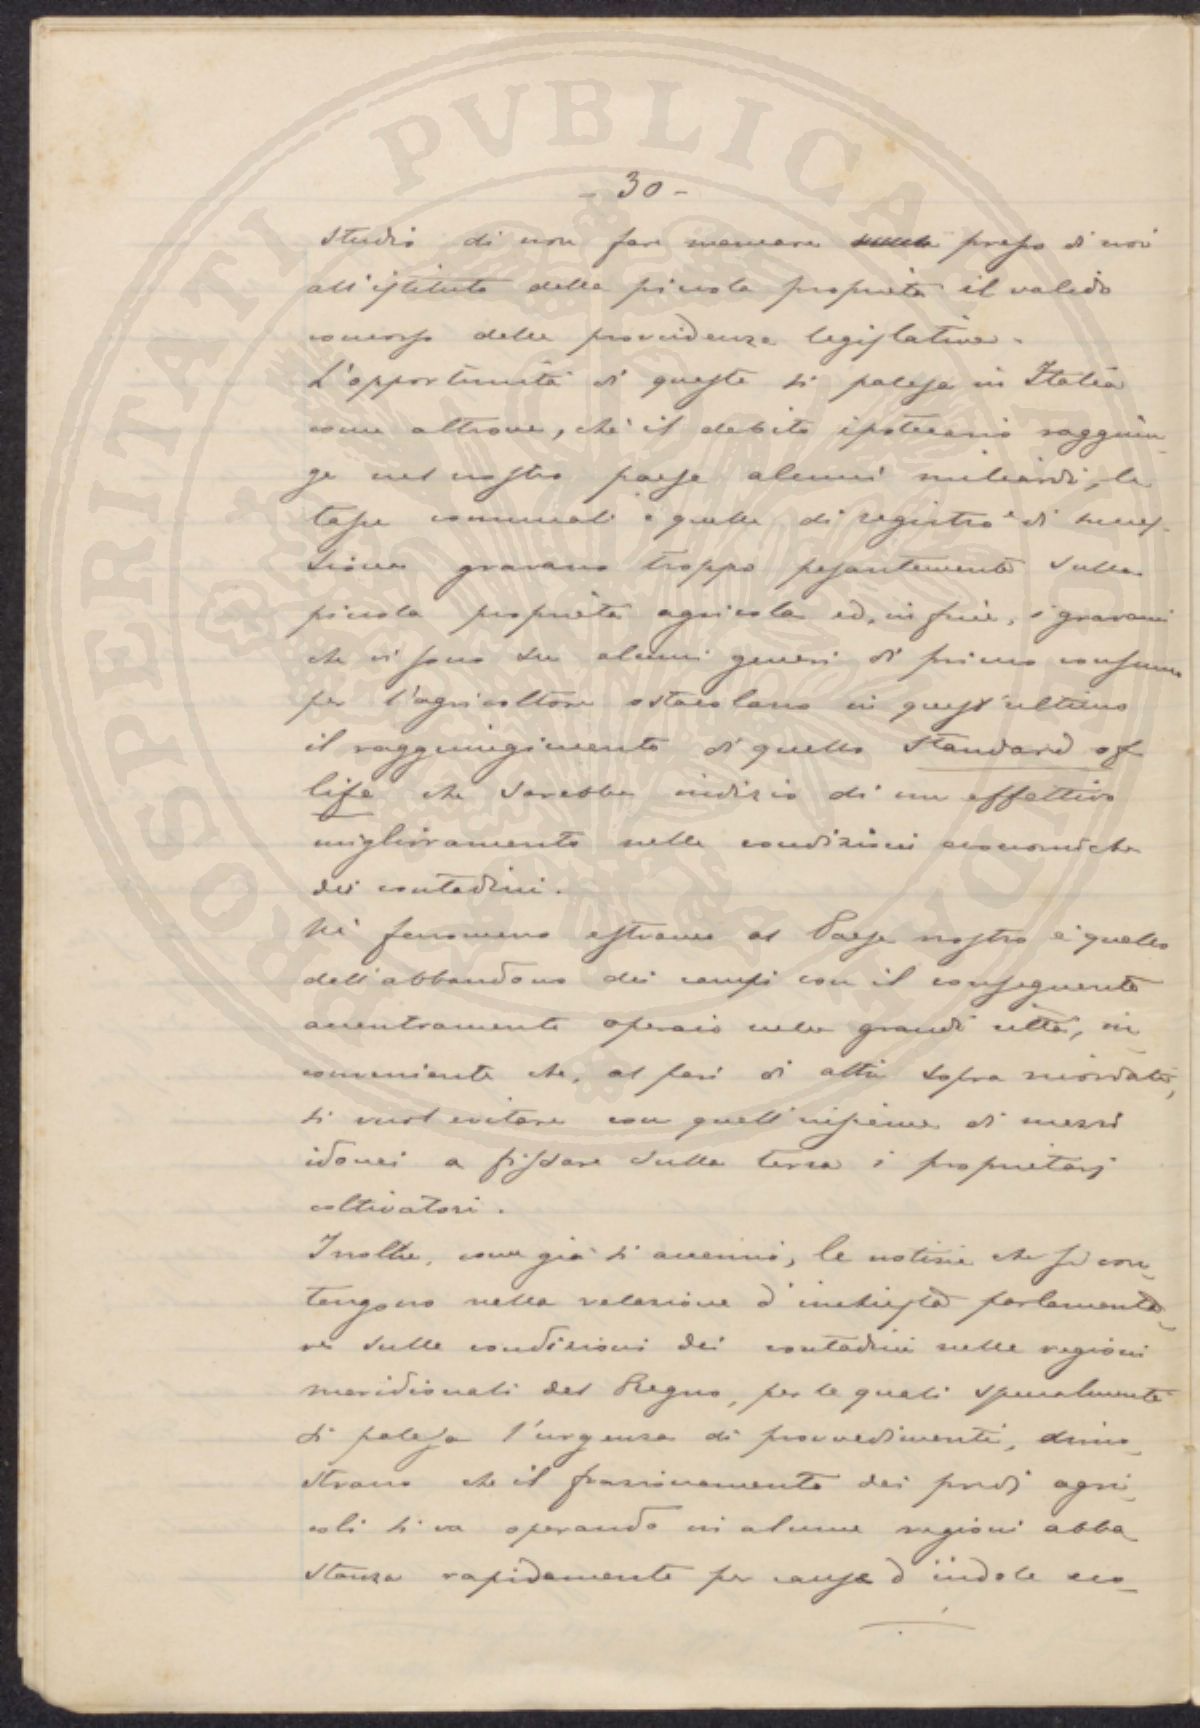 - 30 -
studio di non fare mancare presso di noi
all'istituto della piccola proprietà il valido
concorso delle provvidenze legislative.
L'opportunità di queste si palesa in Italia
come altrove, chè il debito ipotecario raggiun-
ge nel nostro paese alcuni miliardi, le
tasse comunali e quelle di registro e di succes-
sione gravano troppo pesantemente sulla
piccola proprietà agricola ed, infine, i gravami
che vi sono su alcuni generi di primo consumo
per l'agricoltore ostacolano in quest'ultimo
il raggiungimento di quello standard of
life che sarebbe indizio di un effettivo
miglioramento nelle condizioni economiche
dei contadini.
Nè fenomeno estraneo al Paese nostro è quello
dell'abbandono dei campi con il conseguente
accentramento operaio nelle grandi città, in-
conveniente che, al pari di altri sopra ricordati,
si vuol evitare con quell'insieme di mezzi
idonei a fissare sulla terra i proprietarj
coltivatori.
Inoltre, come già si accennò, le notizie che si con-
tengono nella relazione d'inchiesta parlamenta-
re sulle condizioni dei contadini nelle regioni
meridionali del Regno, per le quali specialmente
si palesa l'urgenza di provvedimenti, dimo-
strano che il frazionamento dei predj agri-
coli si va operando in alcune regioni abba
stanza rapidamente per cause d'indole eco-
PROSPERITATI PVBLICAE AVGENDAE